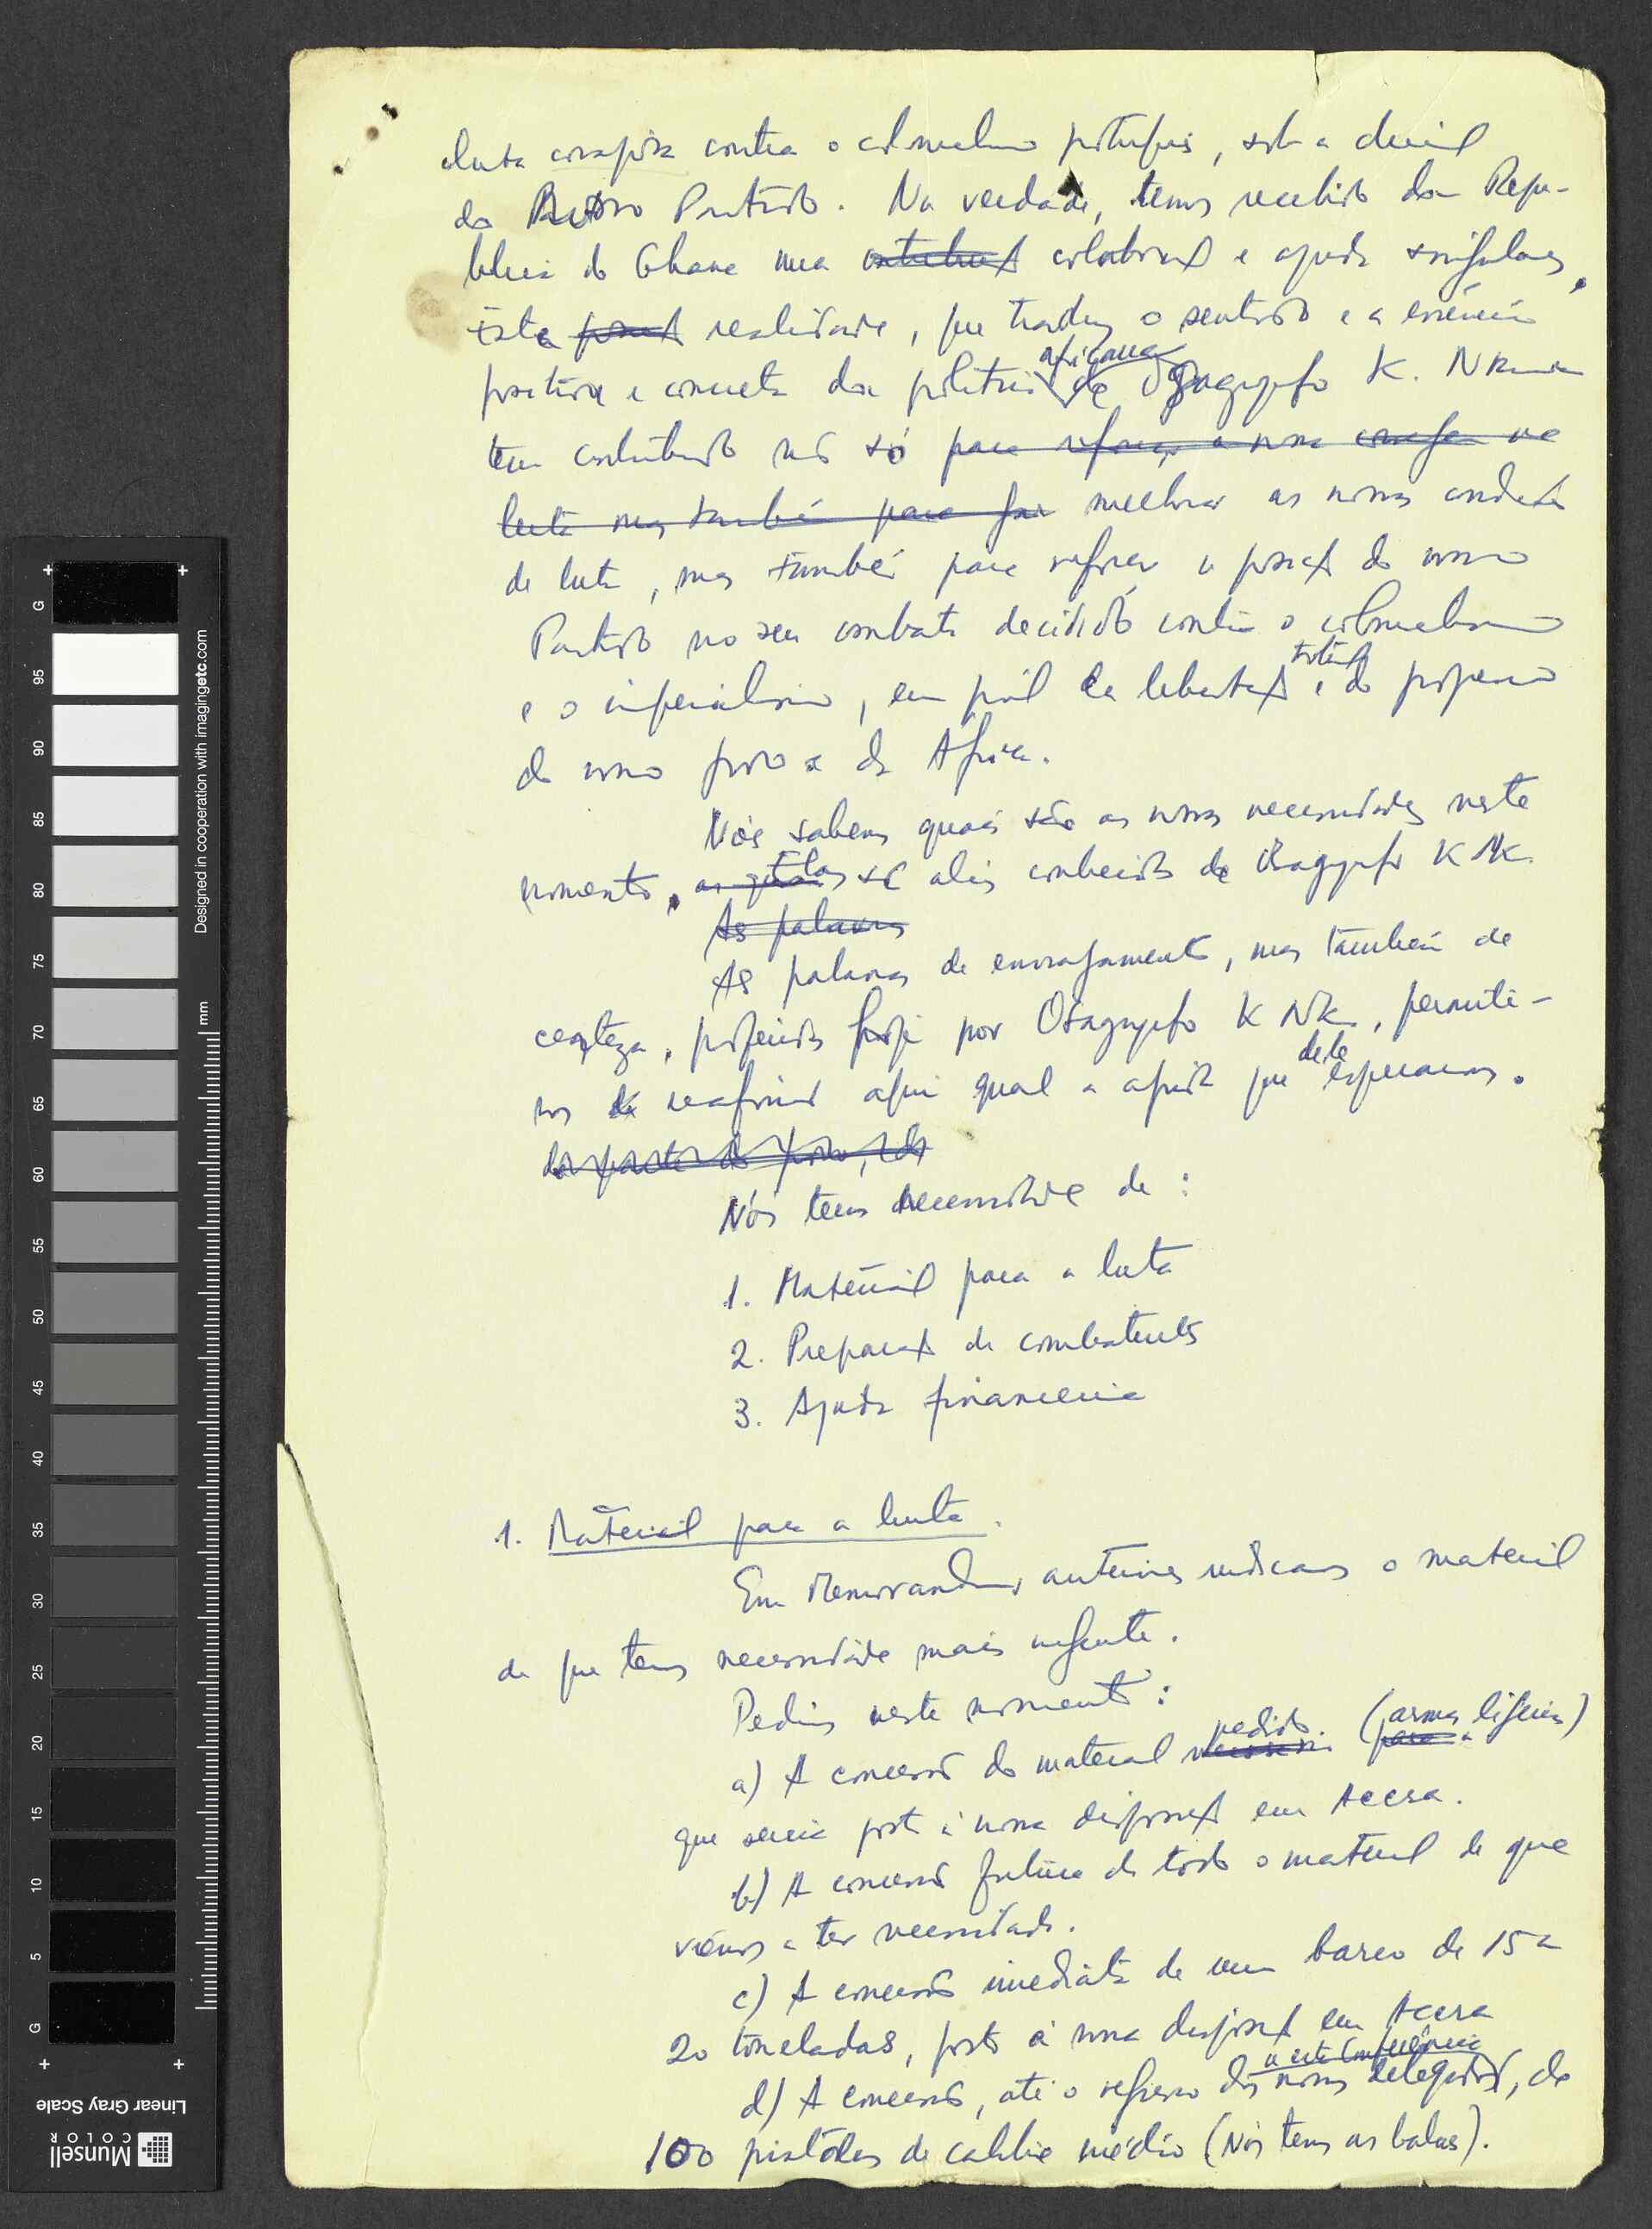 luta corajosa contra o colonialismo português, sob a direcção
do Nosso Partido. Na verdade, temos recebido da Repú-
blica do Ghana uma colaboração e ajuda singulares,
Esta realidade, que traduz o sentido e a essência
positiva e concreta da política africana de Osagyefo K. Nkrumah
tem contribuido não só para reforçar a nossa coragem na
luta mas também para melhorar as nossas condições
de luta, mas também para reforçar a posição do nosso
Partido no seu combate decidido contra o colonialismo
e o imperialismo, em pról da libertação total e do progresso
do nosso povo e da África.
Nós sabemos quais são as nossas necessidades neste
momento, as quais são aliás conhecidas de Osagyefo K Nk.
As palavras
As palavras de encorajamento, mas também de
certeza, proferidas hoje por Osagyefo K Nk., permitem-
nos reafirmar aqui qual a ajuda que dele esperamos.
da parte do
Nós temos necessidade de :
1. Material para a luta
2. Preparação de combatentes
3. Ajuda financeira
1. Material para a luta.
Em Memorandos anteriores indicamos o material
de que temos necessidade mais urgente.
Pedimos neste momento :
a) A concessão do material pedido. (armas ligeiras)
que seria posto à nossa disposição em Accra.
b) A concessão futura de todo o material de que
viermos a ter necessidade.
c) A concessão imediata de um barco de 15 a
20 toneladas, posto à nossa disposição em Accra
d) A concessão, até o regresso dos nossos delegados a esta Conferência, de
100 pistolas de calibre médio (Nós temos as balas).
G
95
90
85
80
75
70
65
60
55
50
45
40
35
30
25
20
15
10
5
G
mm
Designed in cooperation with imagingetc.com
Linear Gray Scale
Munsell
COLOR